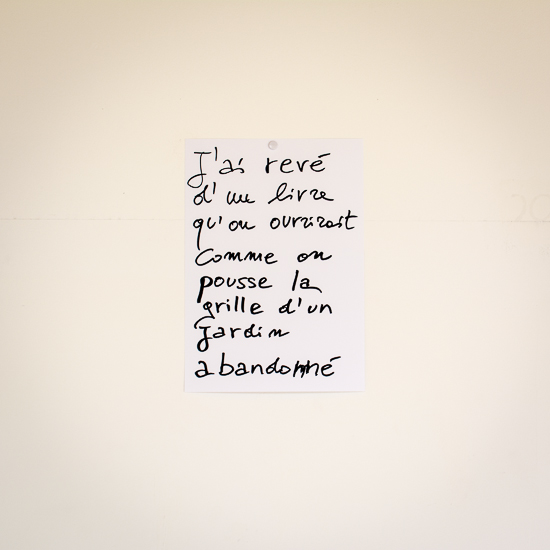 J'ai revé
d'un livre
qu'on ouvrirait
comme on
pousse la
grille d'un
jardin
abandonné